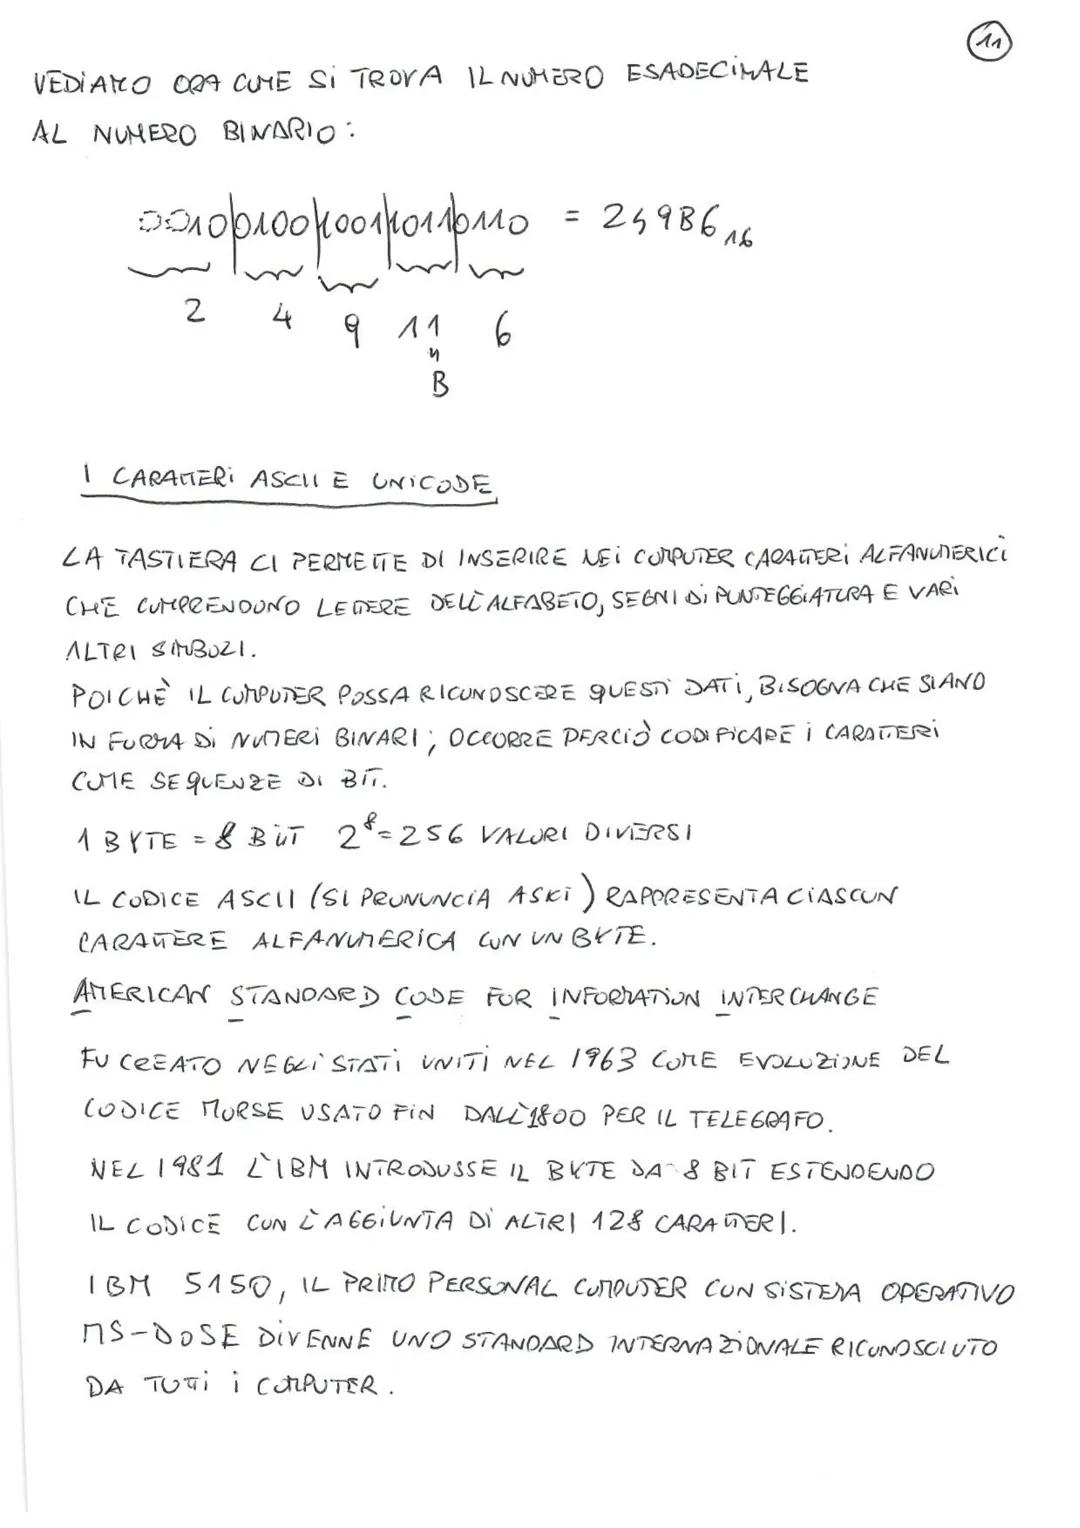 11
VEDIAMO ORA COME SI TROVA IL NUMERO ESADECIMALE
AL NUMERO BINARIO:
0010|0100|1001|1011|0110 = 249B6₁₆
2 4 9 11 6
"
B
I CARATTERI ASCII E UNICODE
LA TASTIERA CI PERMETTE DI INSERIRE NEI COMPUTER CARATTERI ALFANUMERICI
CHE COMPRENDONO LETTERE DELL'ALFABETO, SEGNI DI PUNTEGGIATURA E VARI
ALTRI SIMBOLI.
POICHÈ IL COMPUTER POSSA RICONOSCERE QUESTI DATI, BISOGNA CHE SIANO
IN FORMA DI NUMERI BINARI; OCCORRE PERCIÒ CODIFICARE I CARATTERI
COME SEQUENZE DI BIT.
1 BYTE = 8 BIT 2⁸=256 VALORI DIVERSI
IL CODICE ASCII (SI PRONUNCIA ASKI) RAPPRESENTA CIASCUN
CARATTERE ALFANUMERICA CON UN BYTE.
AMERICAN STANDARD CODE FOR INFORMATION INTERCHANGE
FU CREATO NEGLI STATI UNITI NEL 1963 COME EVOLUZIONE DEL
CODICE MORSE USATO FIN DALL'1800 PER IL TELEGRAFO.
NEL 1981 L'IBM INTRODUSSE IL BYTE DA 8 BIT ESTENDENDO
IL CODICE CON L'AGGIUNTA DI ALTRI 128 CARATTERI.
IBM 5150, IL PRIMO PERSONAL COMPUTER CON SISTEMA OPERATIVO
MS-DOSE DIVENNE UNO STANDARD INTERNAZIONALE RICONOSCIUTO
DA TUTTI I COMPUTER.